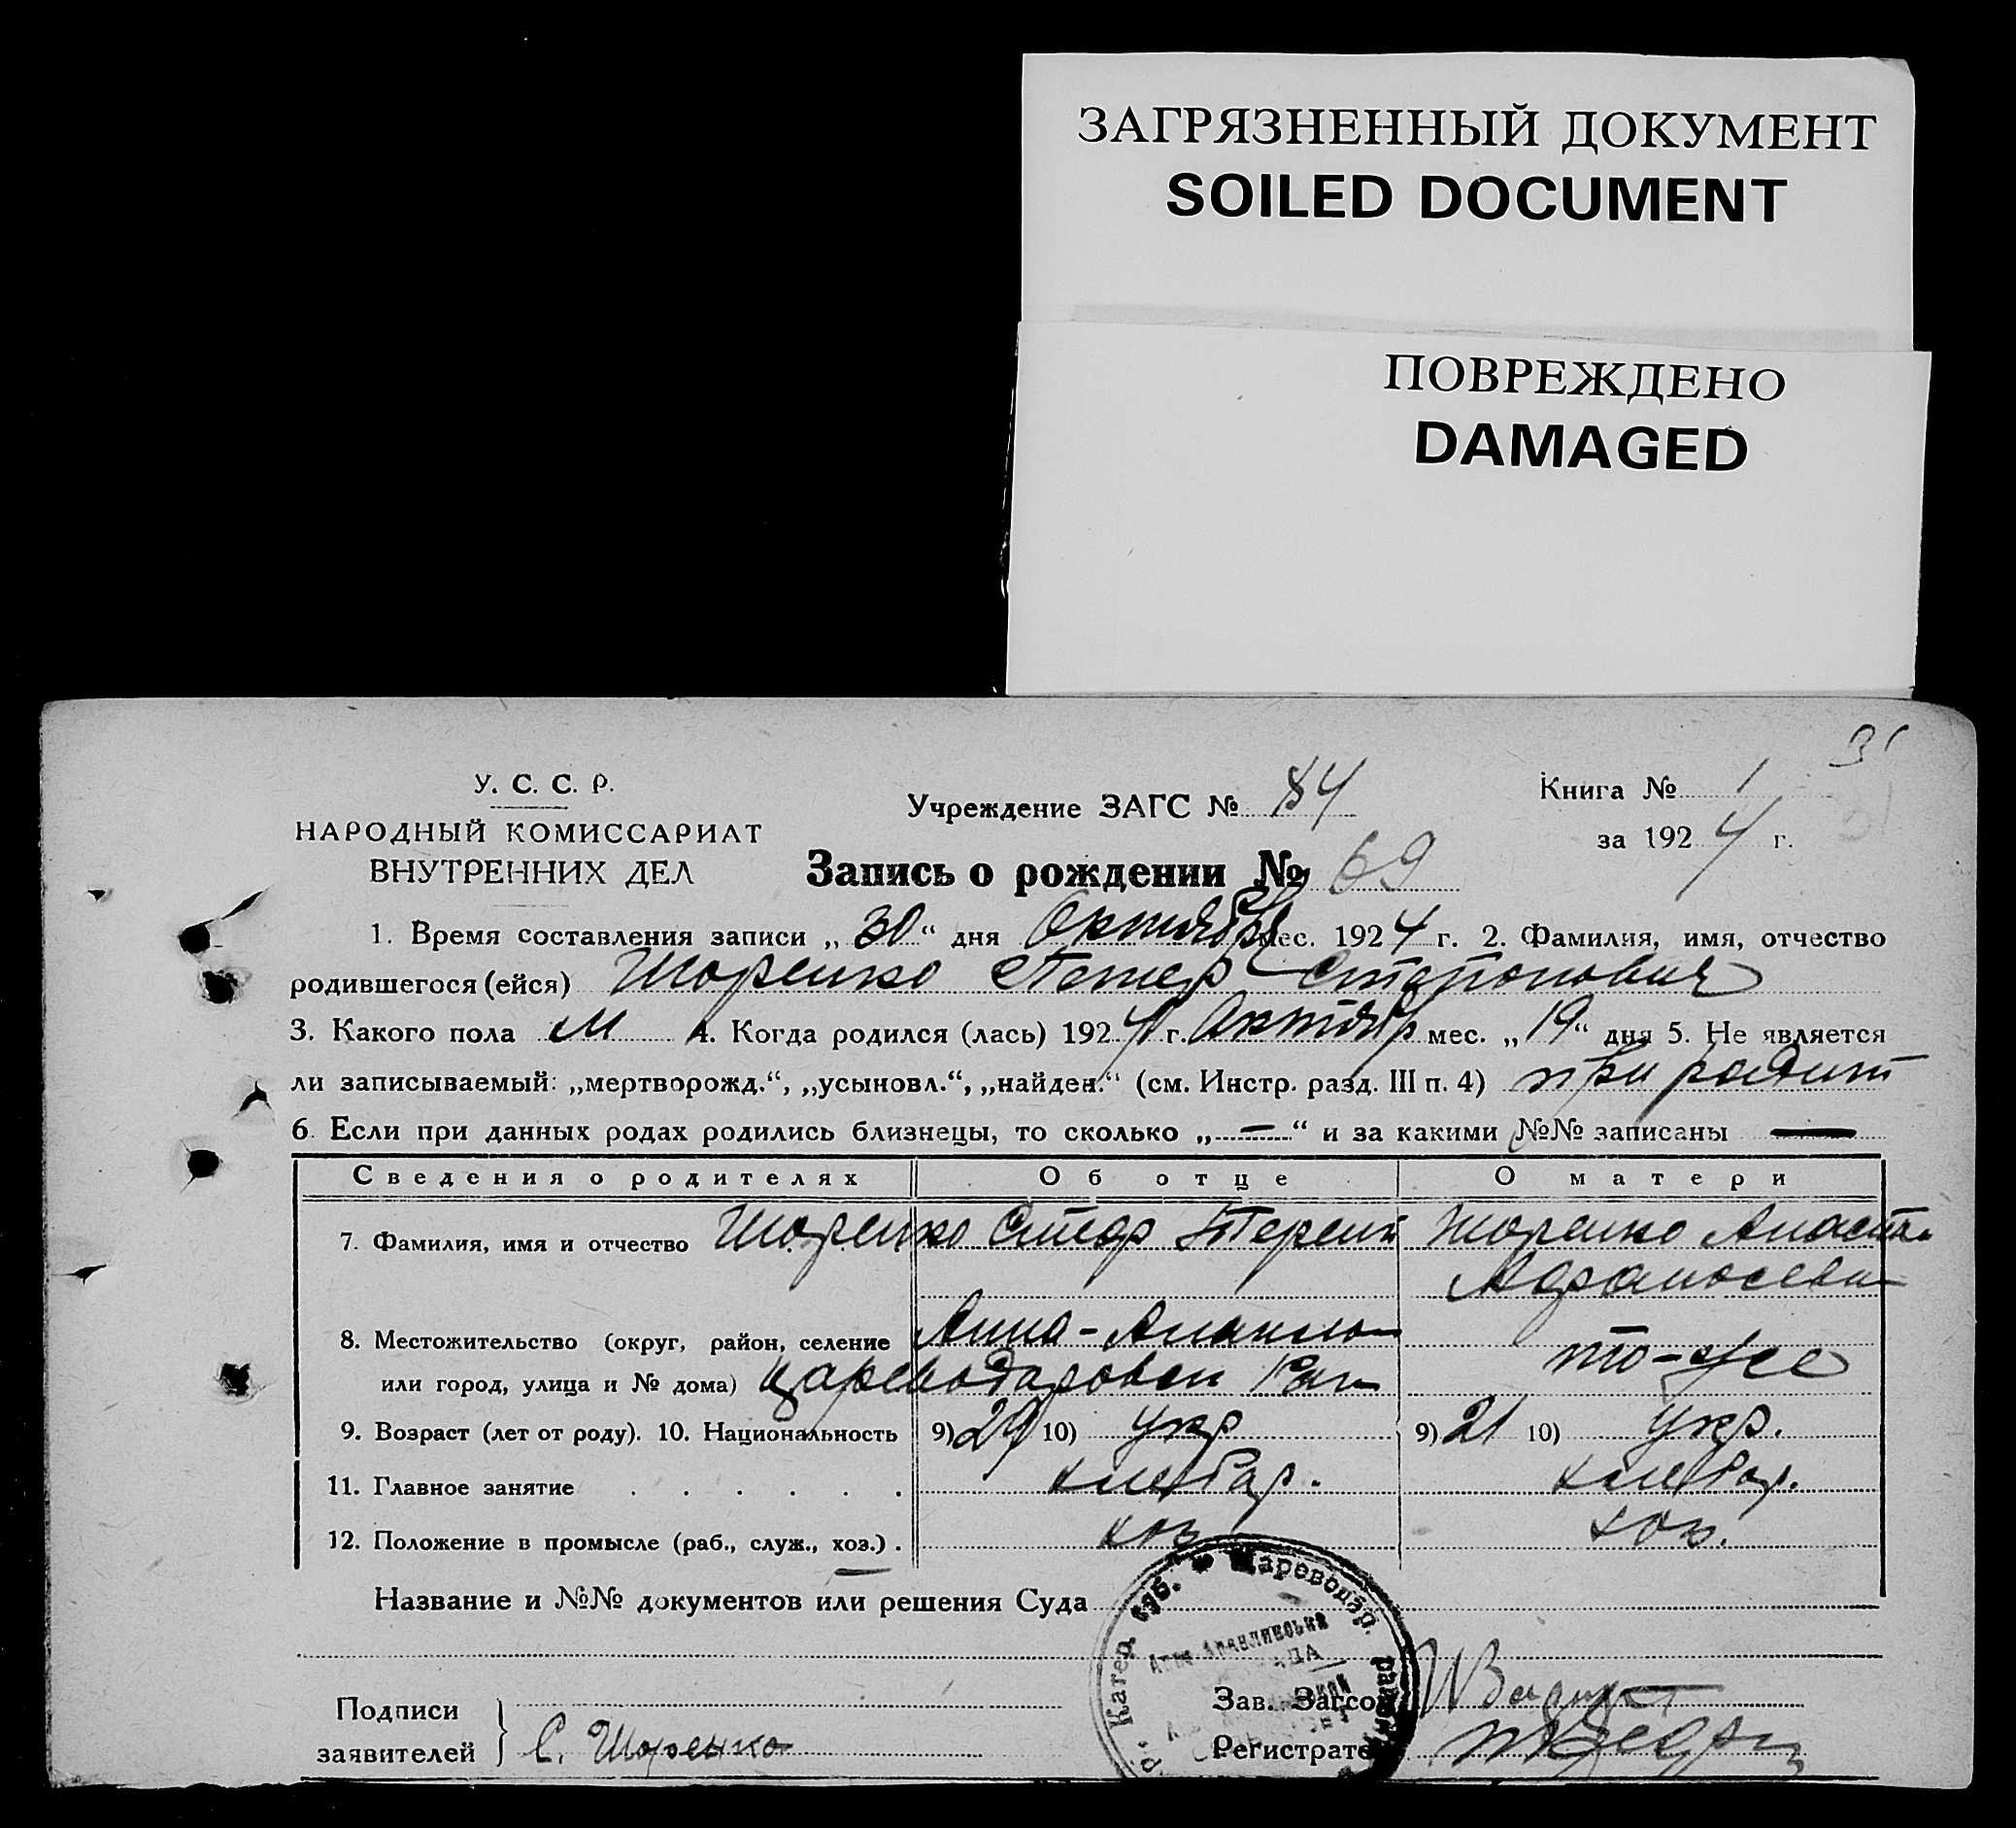 ЗАГРЯЗНЕННЫЙ ДОКУМЕНТ
SOILED DOCUMENT
ПОВРЕЖДЕНО
DAMAGED
У. С. С. Р.
НАРОДНЫЙ КОМИССАРИАТ
ВНУТРЕННИХ ДЕЛ
Учреждение ЗАГС № 84
Книга № 1
за 1924 г.
Запись о рождении № 69
1. Время составления записи „30“ дня Октября мес. 1924 г. 2. Фамилия, имя, отчество
родившегося (ейся) Шоренко Петер
3. Какого пола М 4. Когда родился (лась) 1924 г. Октябр мес. „19“ дня 5. Не является
ли записываемый: „мертворожд.“, „усыновл.“, „найден.“ (см. Инстр. разд. III п. 4) при родит
6. Если при данных родах родились близнецы, то сколько „—“ и за какими №№ записаны —
Сведения о родителях Об отце О матери
7. Фамилия, имя и отчество Шоренко Терент Шоренко Анаста
8. Местожительство (округ, район, селение
или город, улица и № дома) то-же
9. Возраст (лет от роду). 10. Национальность 9) 29 10) укр 9) 21 10) укр.
11. Главное занятие . . . . . . хлебар. хлебар.
12. Положение в промысле (раб., служ., хоз.) . хоз. хоз.
Название и №№ документов или решения Суда
Катер. губ. Цареводар. район
Подписи
заявителей С. Шоренко
Зав. Загсо
Регистрате